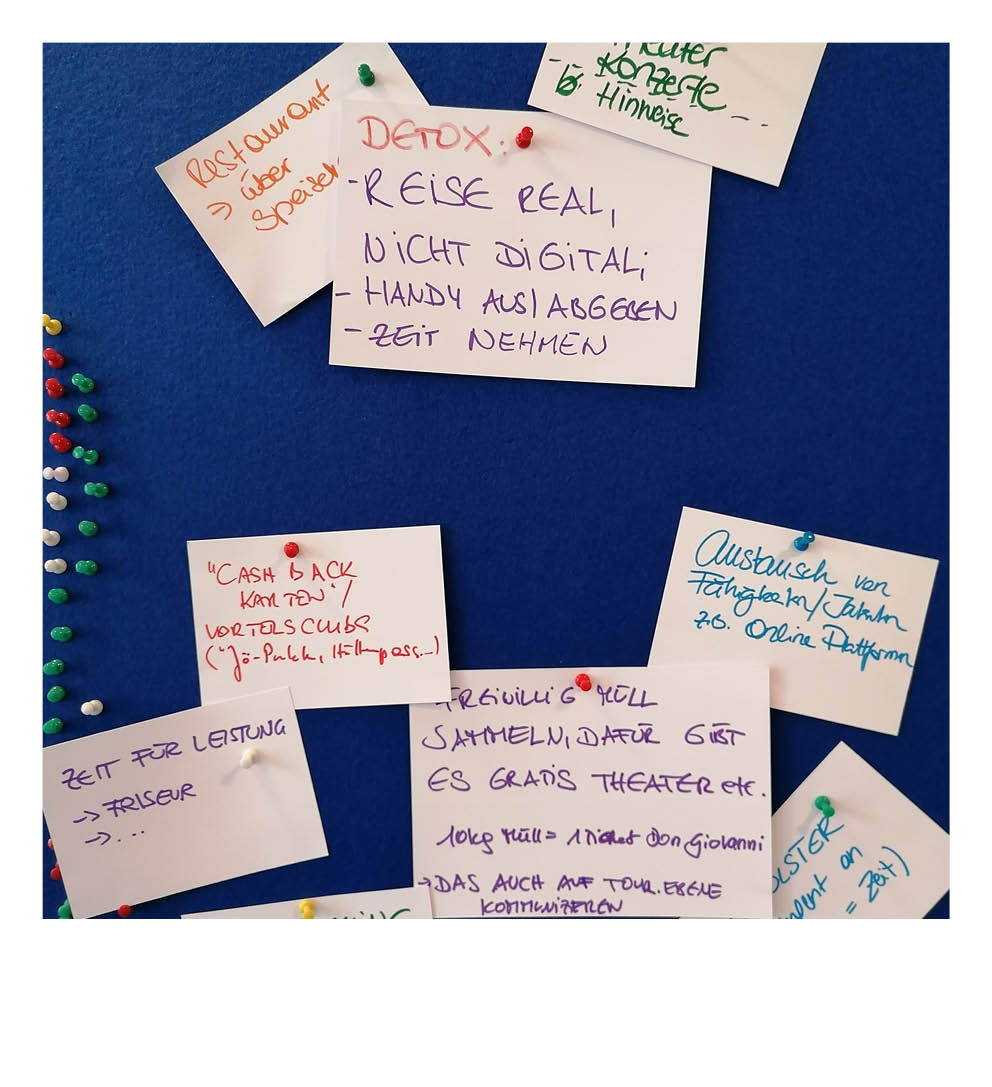 Konzerte
Hinweise
Restaurant
=> über
DETOX:
- REISE REAL,
NICHT DIGITAL;
- HANDY AUS/ABGEBEN
- ZEIT NEHMEN
"CASH BACK
KARTEN"/
VORTEILSCLUBS
Austausch von
Fähigkeiten/
z.B. Online Plattformen
ZEIT FÜR LEISTUNG
-> FRISEUR
-> ...
FREIWILLIG MÜLL
SAMMELN, DAFÜR GIBT
ES GRATIS THEATER etc.
10kg Müll = 1 Ticket Don Giovanni
-> DAS AUCH AUF TOUR. EBENE
KOMMUNIZIEREN
an
= Zeit)